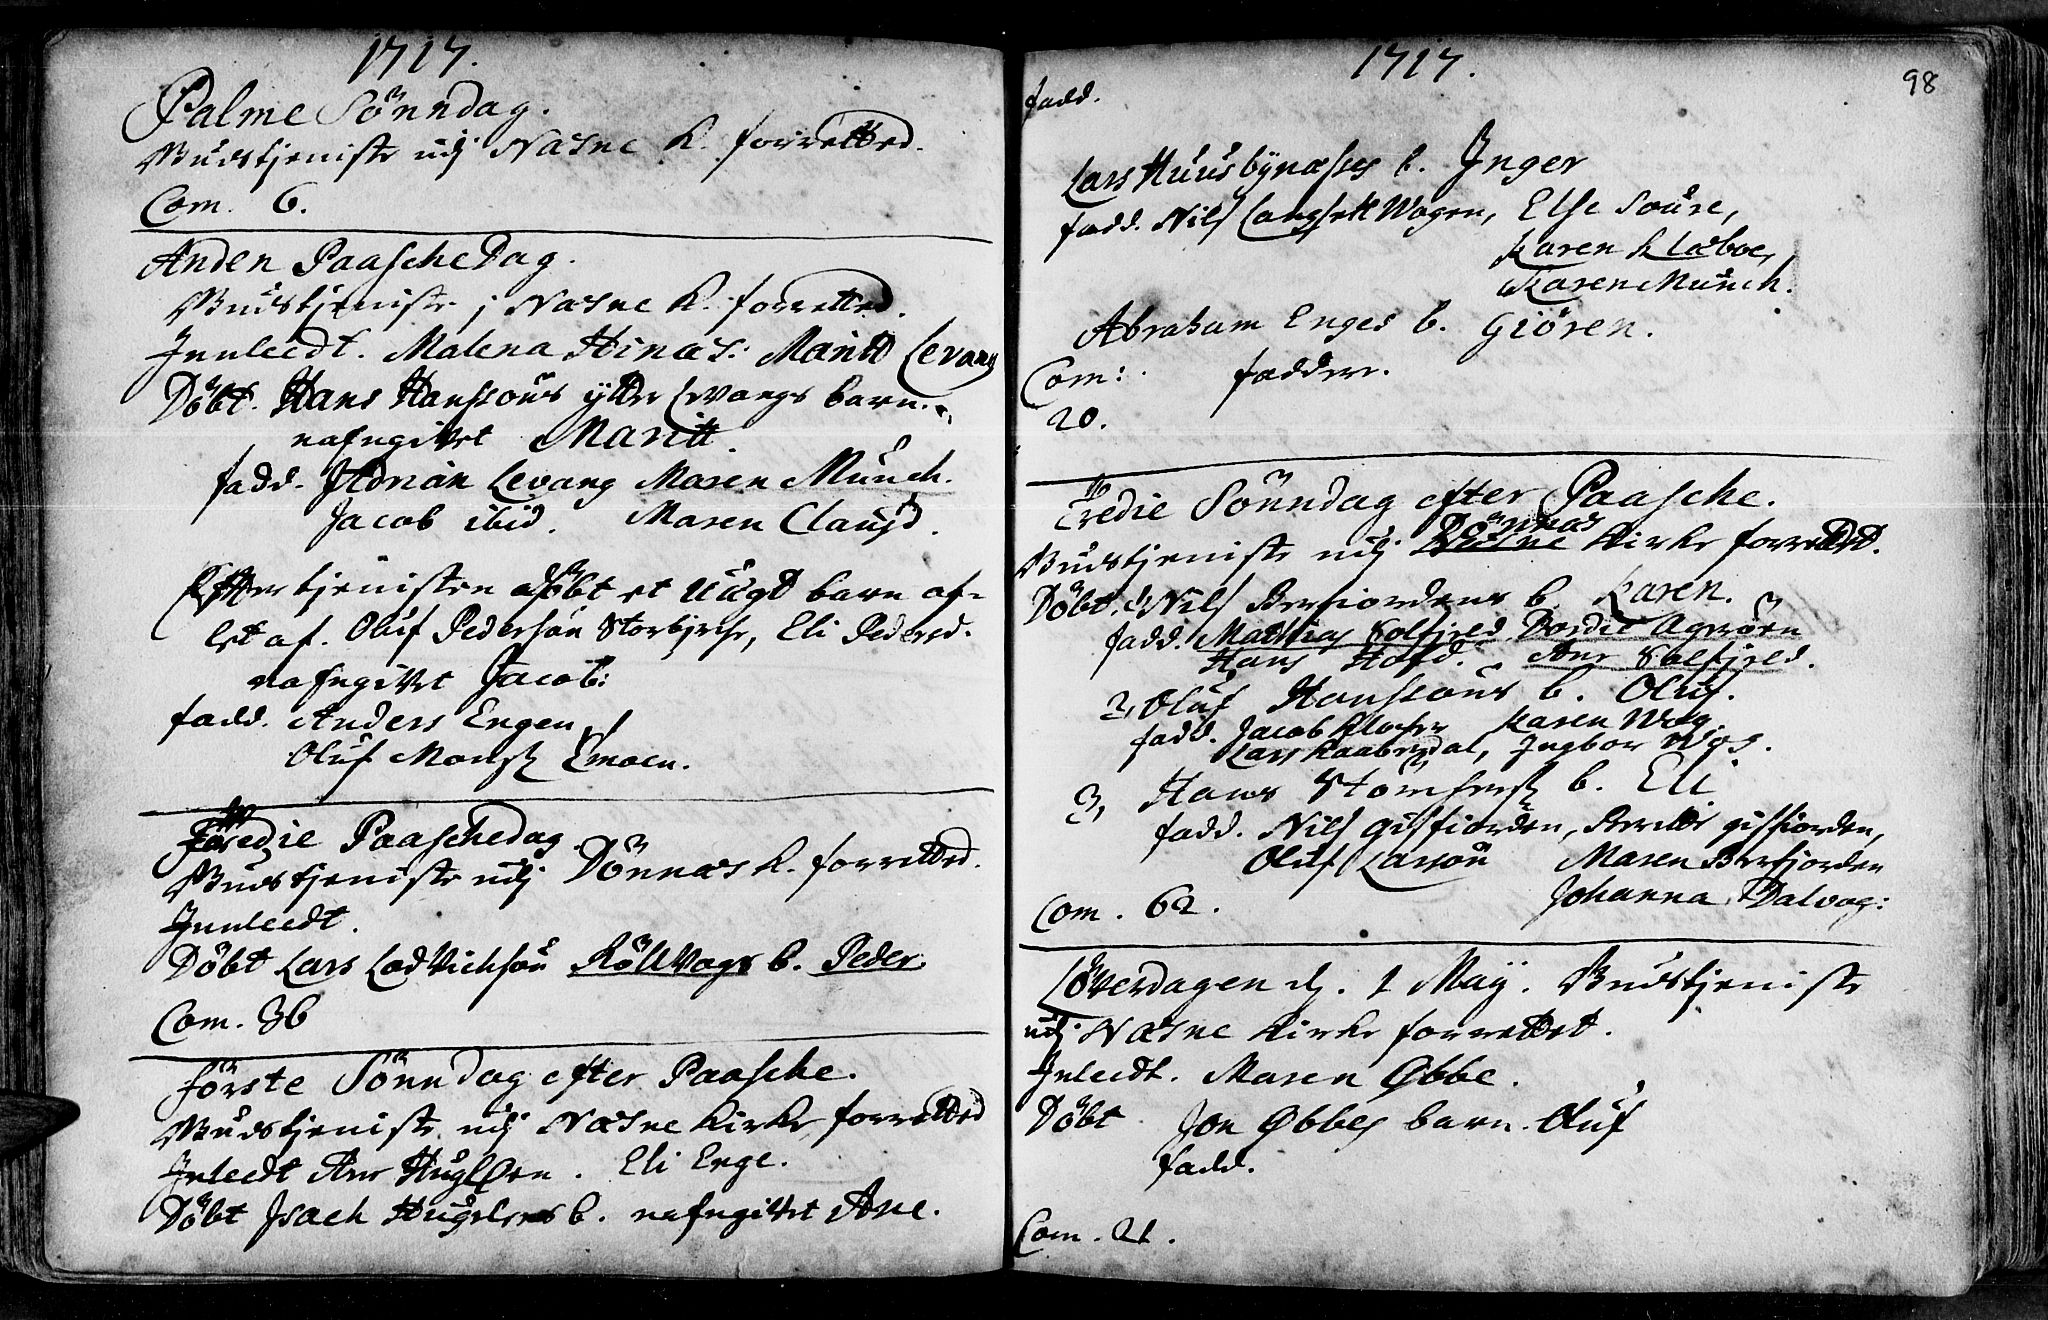 1717.
Palme Sönndag.
Gudstjeniste udj Næsne K. forretted.
Com. 6.
Anden Paasche Dag.
Gudstjeniste j Næsne K. forretted.
Innleedt. Malena Hinæs: Maritt Levang
Döbt. Hans Hanssöns ytter Levangs barn
nafngivet Maritt.
fadd. Adrian Levang Maren Münch.
Jacob ibid. Maren
Efter tjenisten döbt et Uægt barn af-
let af. Oluf Pedersön Eli Pedersd.
nafngivet Jacob:
fadd. Anders Engen
Oluf
Tredie Paaschedag
Gudstjeniste udj Dönnæs K. forretted.
Innleedt.
Döbt Lars Lodvichsön Röllvogs b. Peder.
Com. 36
Förste Sönndag efter Paasche.
Gudstjeniste udj Næsne Kirke forretted
Inleedt Ane Eli Enge.
Döbt Isach b. nafngivet Ane.
1717.
98
fadd.
Lars Huusbynæsses b. Inger
fadd. Nils Langsett Wogen, Else
Karen Klæboe,
Karen Münch.
Abraham Enges b. Giören.
Com: faddere.
20.
Tredie Sönndag efter Paasche.
Gudstjeniste udj Dönnæs Kirke forretted.
Döbt. 1 Nils b. Karen.
fadd. Mathias Solfjeld, Dordie
Hans Ane Solfjeld.
2, Oluf Hanssöns b. Oluf.
fadd. Jacob Karen
Lars Ingbor
3, Hans b. Eli
fadd. Nils Gisfiorden, Berette Gisfiorden,
Oluf Larsön Maren
Com. 62. Johanna Dalvog:
Löverdagen d. 1 Maÿ. Gudstjeniste
udj Næsne Kirke forrettet.
Inleedt. Maren Øbbe.
Döbt Jon Øbbes barn Oluf
fadd.
Com. 21.